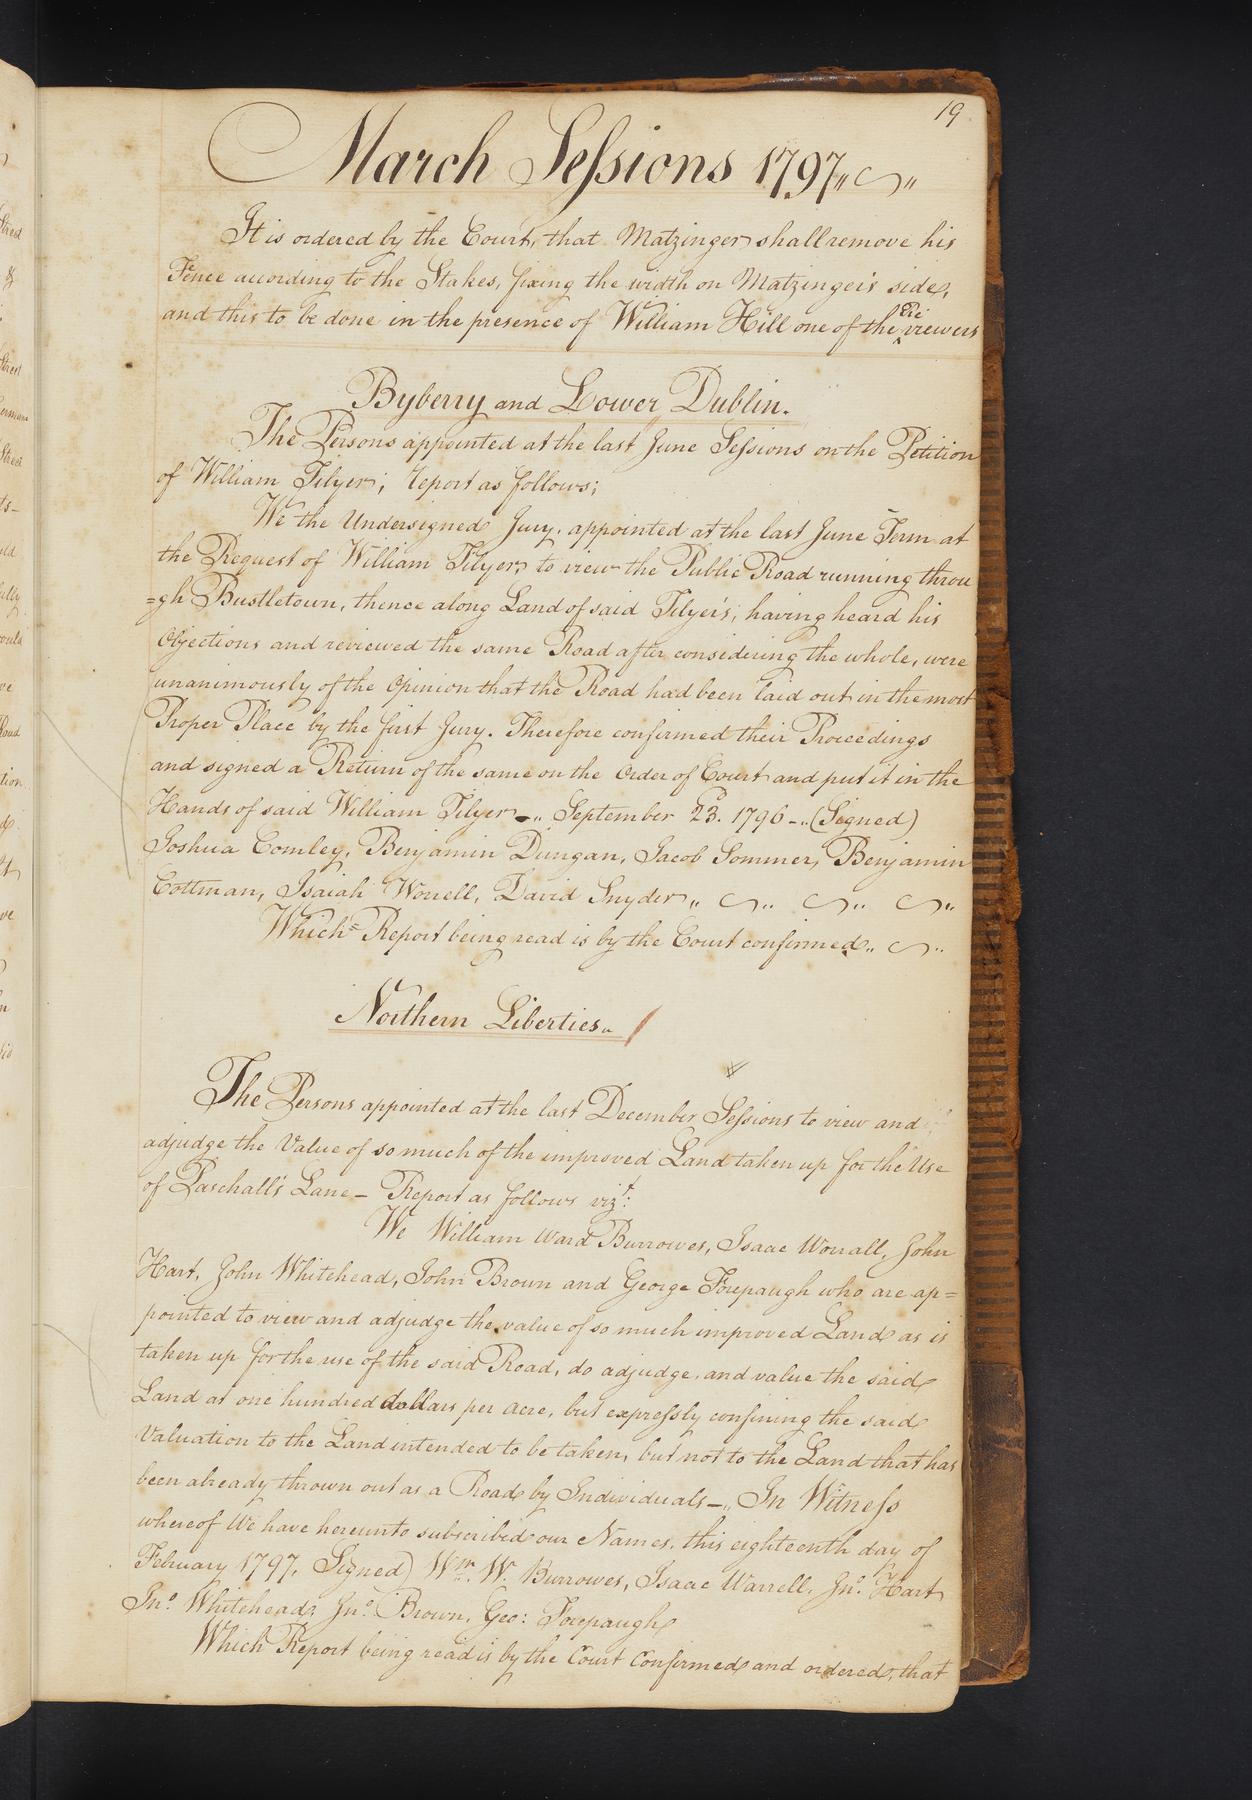 19
March Sessions 1797
It is ordered by the Court, that Matzinger shall remove his
Fence according to the Stakes, fixing the width on Matzinger's side,
and this to be done in the presence of William Hill one of the ^Re viewers
Byberry and Lower Dublin.
The Persons appointed at the last June Sessions on the Petition
of William Tilyer; report as follows;
We the Undersigned Jury, appointed at the last June Term at
the Request of William Tilyer, to view the Public Road running throu
=gh Bustletown, thence along Land of said Tilyer's; having heard his
Objections and reviewed the same Road after considering the whole, were
unanimously of the Opinion that the Road had been laid out in the most
Proper Place by the first Jury. Therefore confirmed their Proceedings
and signed a Return of the same on the Order of Court and put it in the
Hands of said William Tilyer —,, September 23. 1796 —,, (Signed)
Joshua Comley, Benjamin Dungan, Jacob Sommer, Benjamin
Cottman, Isaiah Worrell, David Snyder,,
Which Report being read is by the Court confirmed,,
Northern Liberties,,
The Persons appointed at the last December Sessions to view and
adjudge the Value of so much of the improved Land taken up for the Use
of Paschall's Lane — Report as follows vizt:
We William Ward Burrowes, Isaac Worrall, John
Hart, John Whitehead, John Brown and George Forepaugh who are ap=
pointed to view and adjudge the value of so much improved Land as is
taken up for the use of the said Road, do adjudge, and value the said
Land at one hundred dollars per acre, but expressly confining the said
Valuation to the Land intended to be taken, but not to the Land that has
been already thrown out as a Road by Individuals —,, In Witness
whereof We have hereunto subscribed our Names, this eighteenth day of
February 1797, Signed) Wm. W. Burrowes, Isaac Warrell, Jno. Hart
Jno. Whitehead, Jno. Brown, Geo: Forepaugh
Which Report being read is by the Court Confirmed and ordered, that